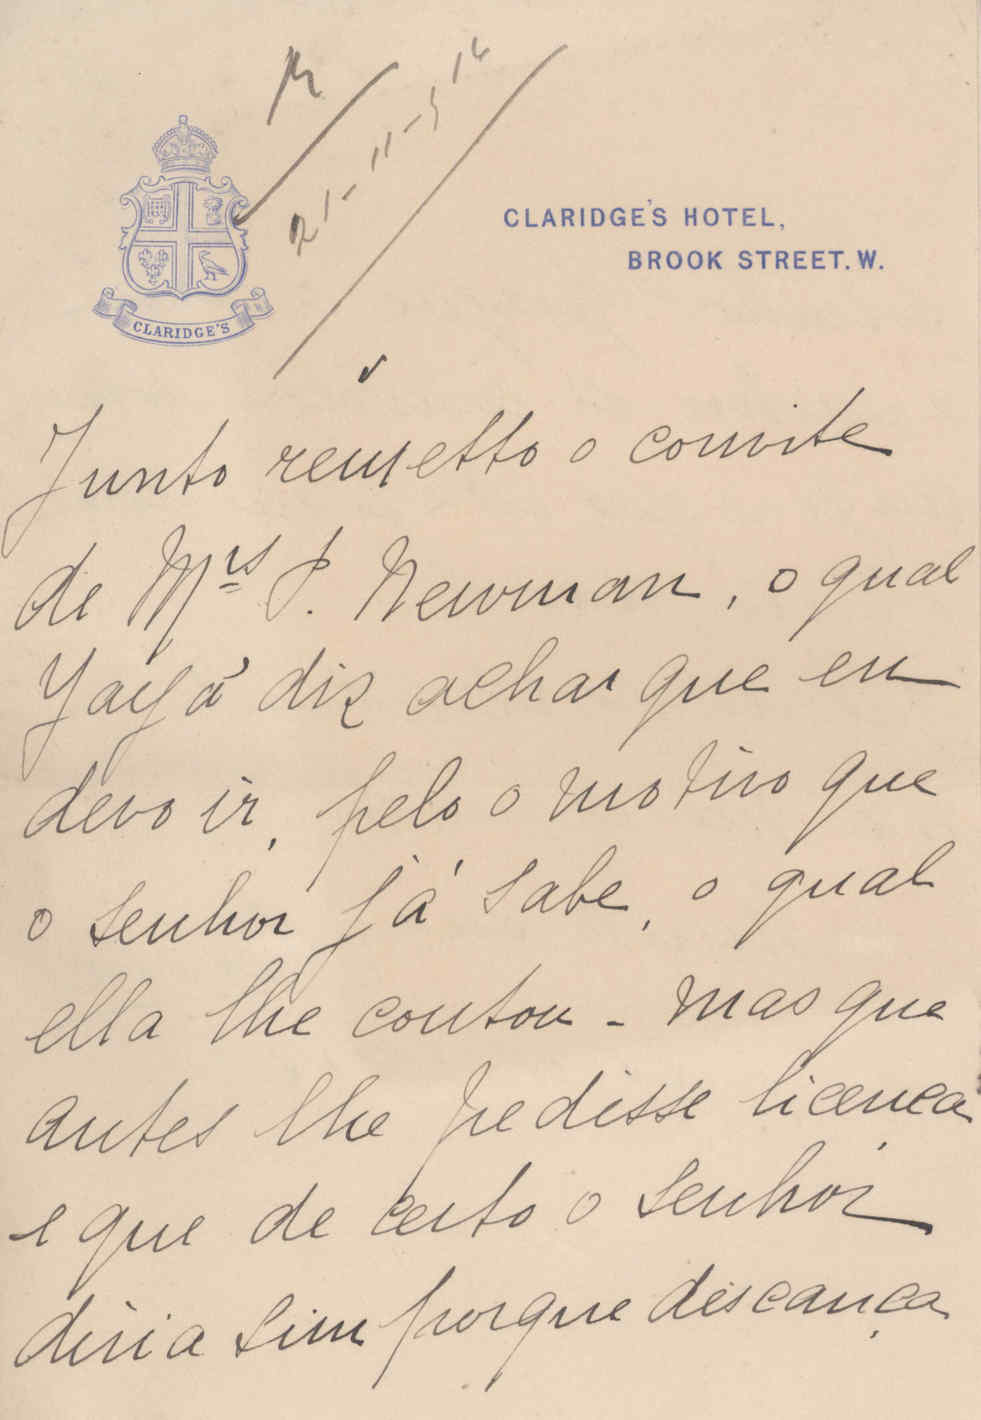 21-11-914
CLARIDGE'S HOTEL,
BROOK STREET. W.
CLARIDGE'S
Junto remetto o convite
de Mrs P. Newman, o qual
Yayá diz achar que eu
devo ir, pelo o motivo que
o senhor já sabe, o qual
ella lhe contou - mas que
antes lhe pedisse licença
e que de certo o senhor
diria sim porque descança